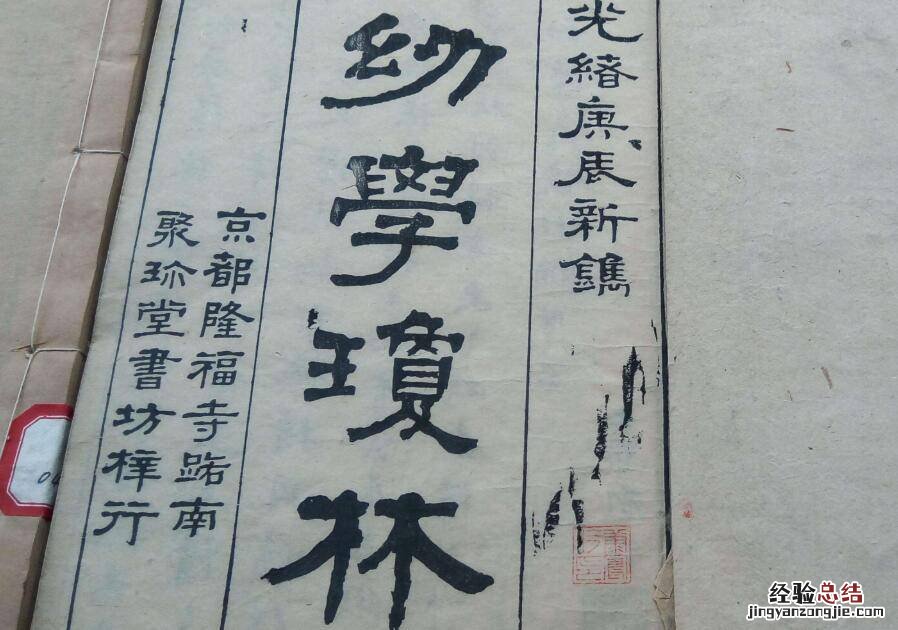 光緒庚辰新鐫
幼學瓊林
京都隆福寺路南
聚珍堂書坊梓行
经验总结
jingyanzongjie.com